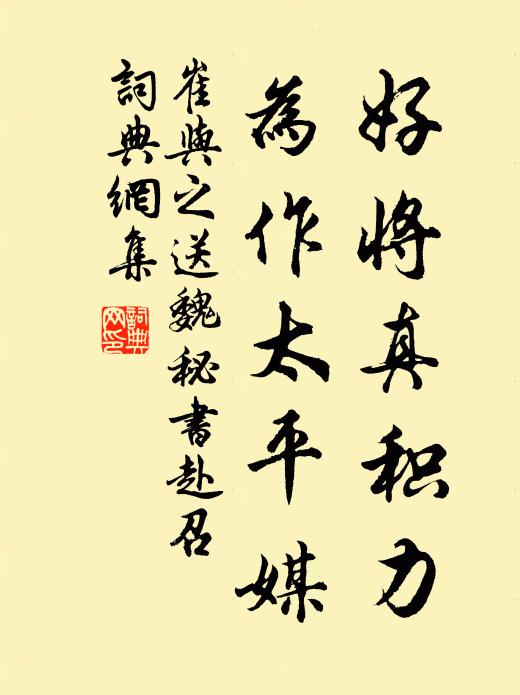 好将真积力
為作太平媒
崔與之送魏秘書赴召
詞典網集
詞典網印